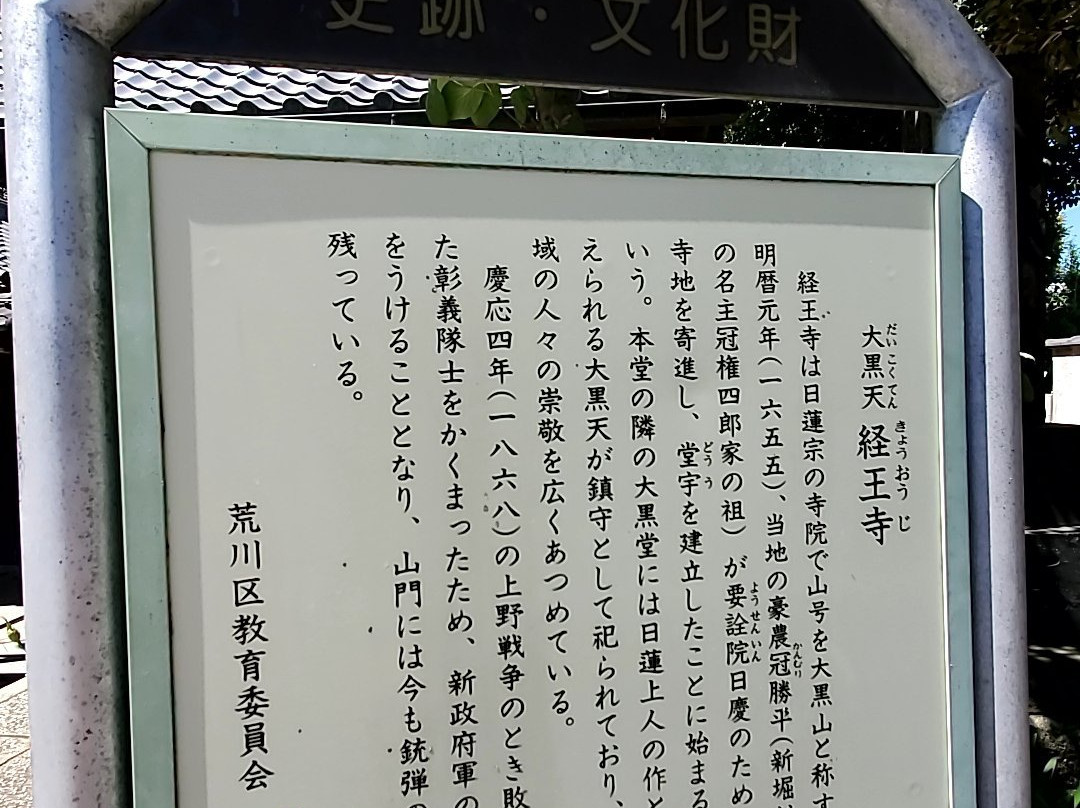 史跡・文化財
大黒天 経王寺
だいこくてん きょうおうじ
経王寺は日蓮宗の寺院で山号を大黒山と称す
明暦元年(一六五五)、当地の豪農冠勝平(新堀
かんむり
の名主冠権四郎家の祖)が要詮院日慶のため
ようせんいん
寺地を寄進し、堂宇を建立したことに始まる
どうう
いう。本堂の隣の大黒堂には日蓮上人の作と
えられる大黒天が鎮守として祀られており、
域の人々の崇敬を広くあつめている。
慶応四年(一八六八)の上野戦争のとき敗
た彰義隊士をかくまったため、新政府軍の
をうけることとなり、山門には今も銃弾の
残っている。
荒川区教育委員会